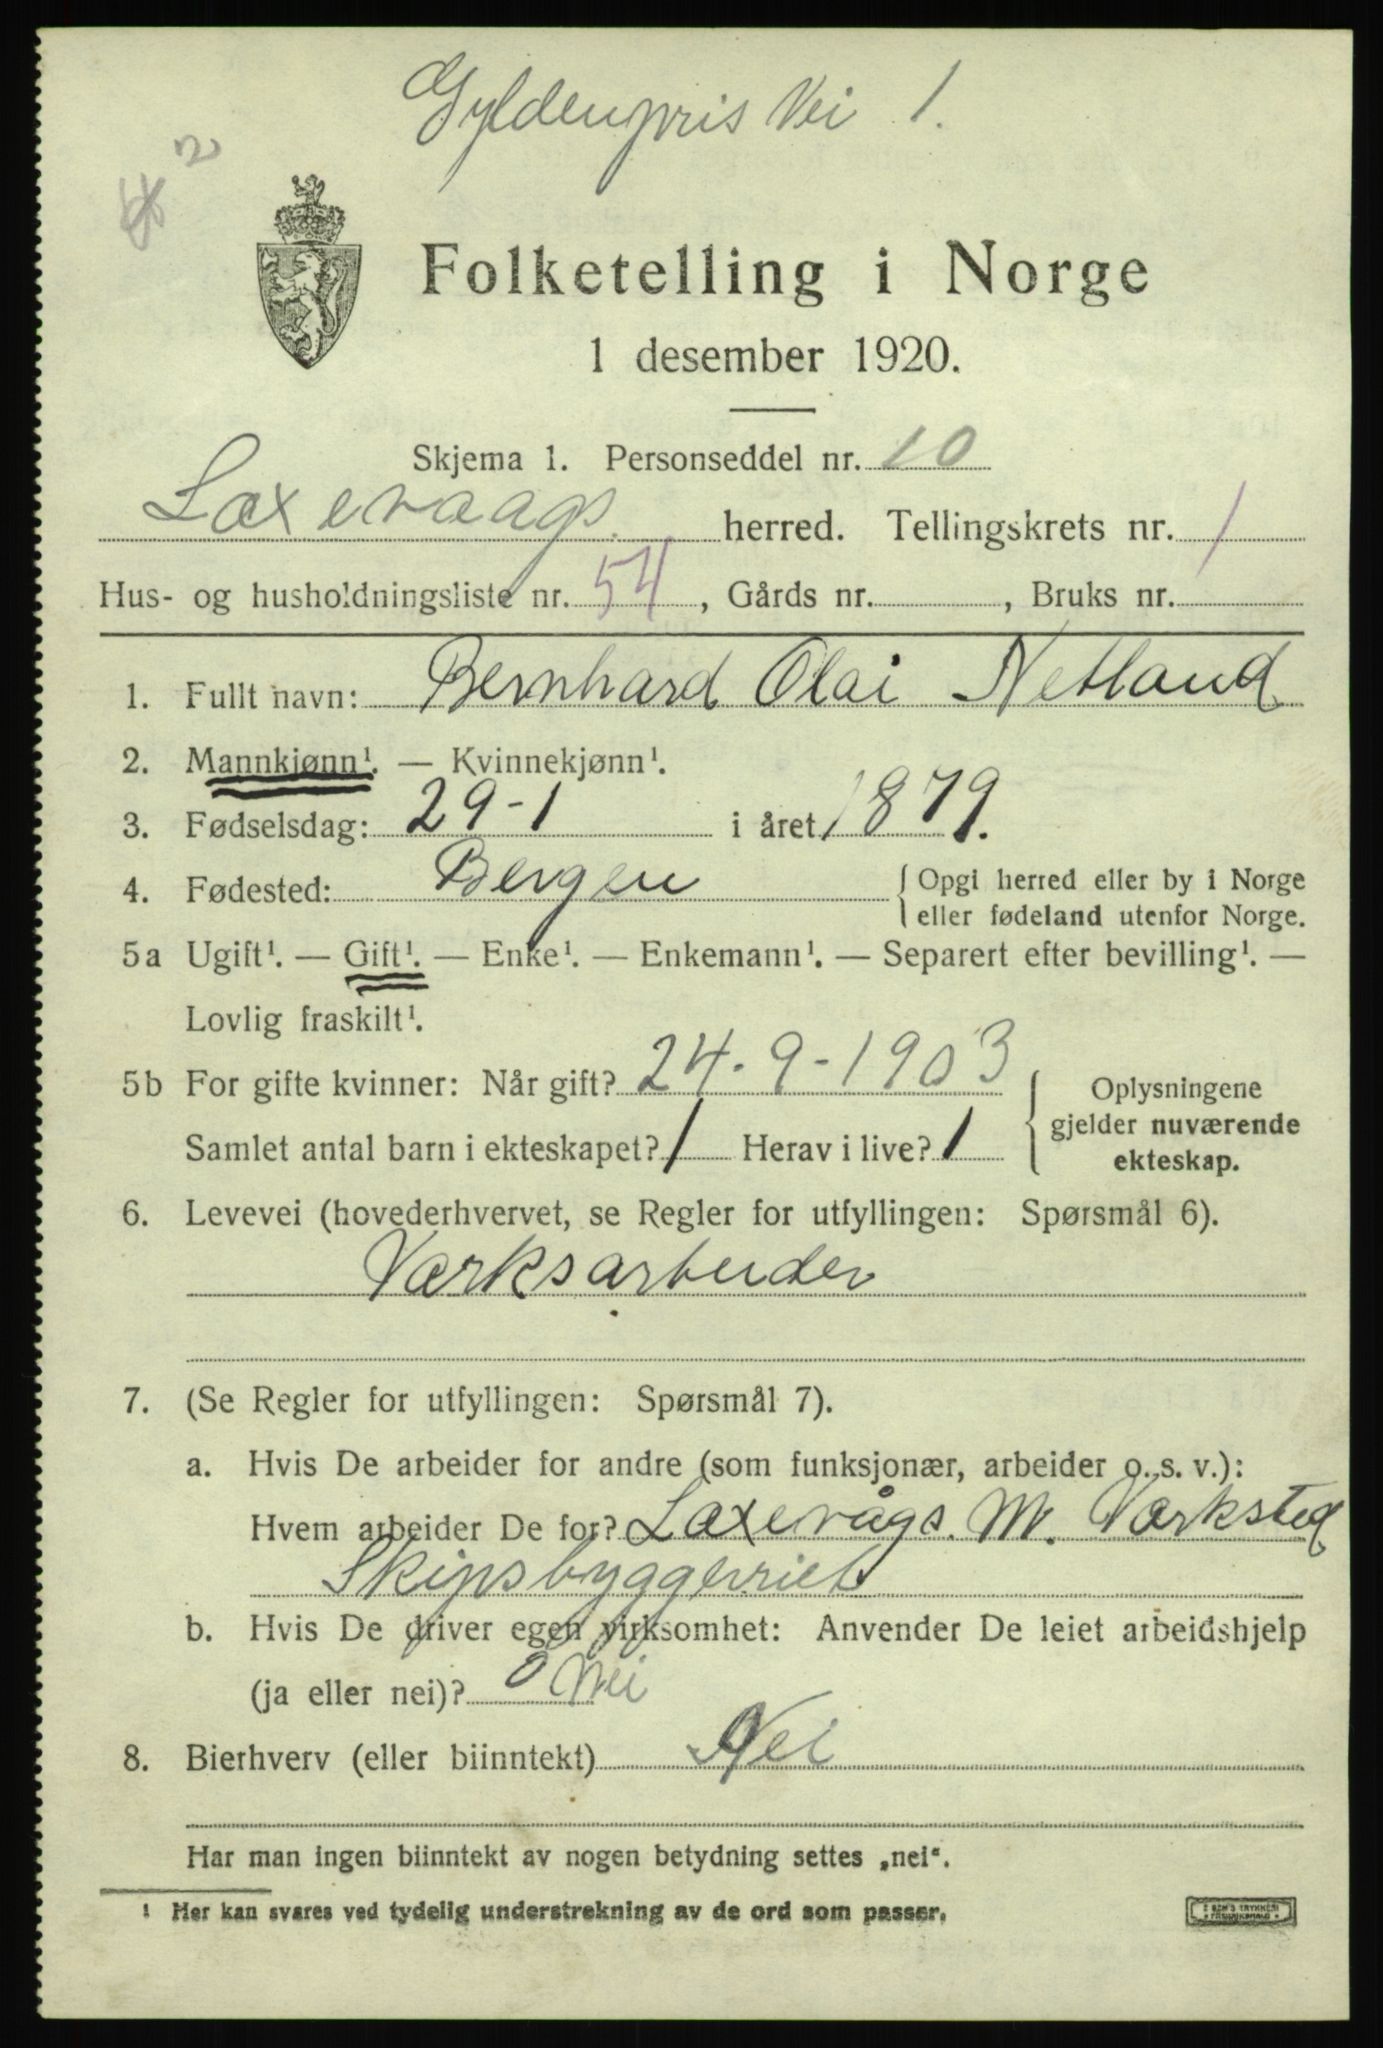 Gyldenpris Vei 1.
2
Folketelling i Norge
1 desember 1920.
Skjema 1. Personseddel nr. 10
Laxevaags herred. Tellingskrets nr. 1
Hus- og husholdningsliste nr. 54, Gårds nr. , Bruks nr.
1. Fullt navn: Bernhard Olai Netland
2. Mannkjønn¹. — Kvinnekjønn¹.
3. Fødselsdag: 29-1 i året 1879.
4. Fødested: Bergen { Opgi herred eller by i Norge
eller fødeland utenfor Norge.
5a Ugift¹. — Gift¹. — Enke¹. — Enkemann¹. — Separert efter bevilling¹. —
Lovlig fraskilt¹.
5b For gifte kvinner: Når gift? 24-9-1903
Samlet antal barn i ekteskapet? 1 Herav i live? 1
Oplysningene
gjelder nuværende
ekteskap.
6. Levevei (hovederhvervet, se Regler for utfyllingen: Spørsmål 6).
Værksarbeider
7. (Se Regler for utfyllingen: Spørsmål 7).
a. Hvis De arbeider for andre (som funksjonær, arbeider o. s. v.):
Hvem arbeider De for? Laxevågs. M. Værksted
Skipsbyggeriet
b. Hvis De driver egen virksomhet: Anvender De leiet arbeidshjelp
(ja eller nei)? 0 Nei
8. Bierhverv (eller biinntekt) Nei
Har man ingen biinntekt av nogen betydning settes „nei“.
¹ Her kan svares ved tydelig understrekning av de ord som passer.